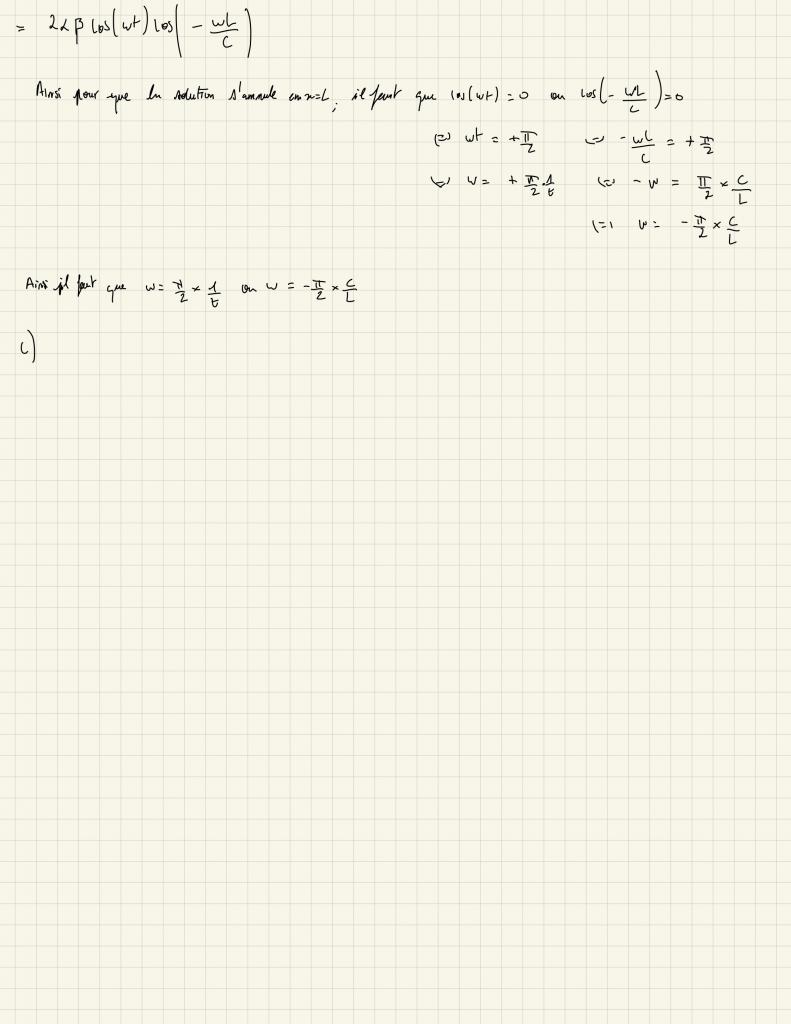 = 2αβ cos(wt) cos(- wL/C)
Ainsi pour que la solution s'annule en x=L, il faut que cos(wt) = 0 ou cos(- wL/C) = 0
(=) wt = + π/2 (=) - wL/C = + π/2
(=) w = + π/2 · 1/t (=) - w = π/2 × C/L
(=) w = - π/2 × C/L
Ainsi il faut que w = π/2 × 1/t ou w = - π/2 × C/L
c)